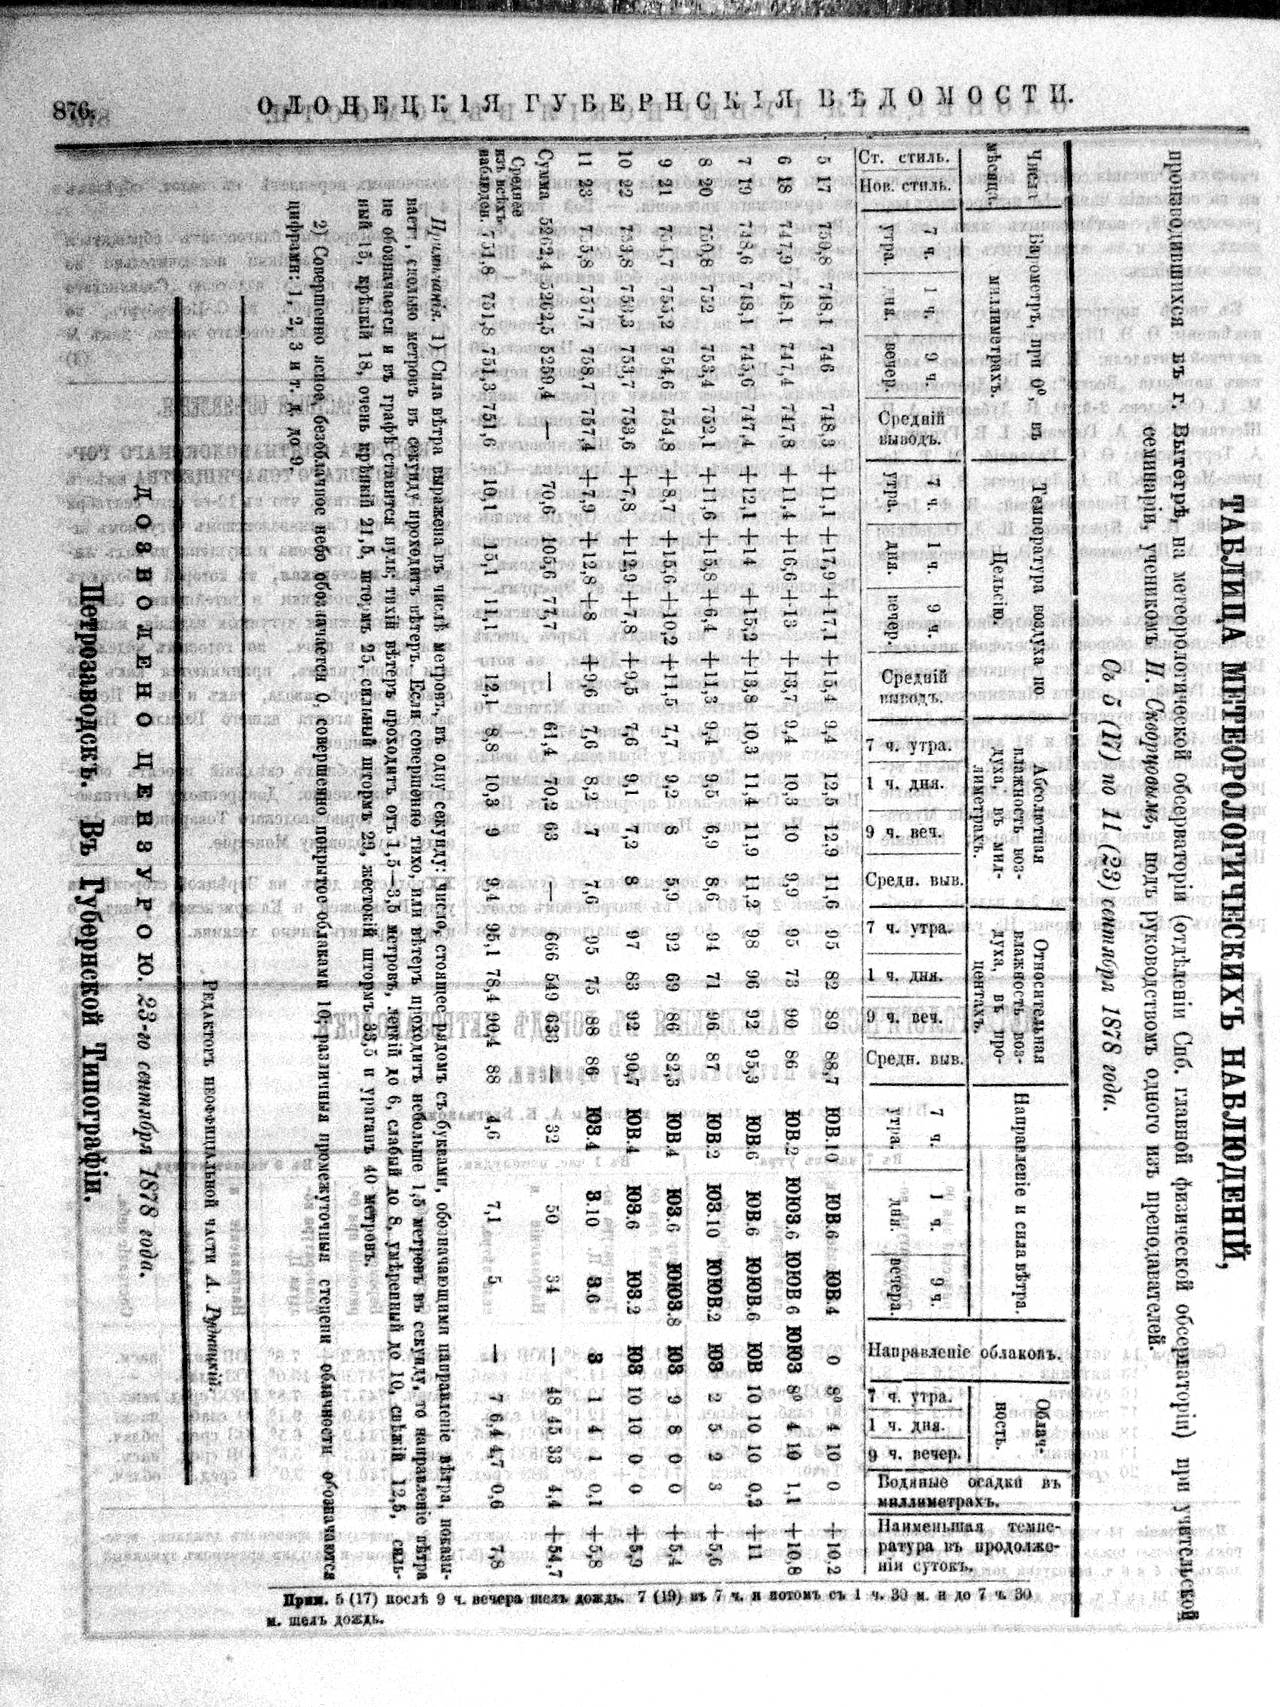 876.
ОЛОНЕЦКІЯ ГУБЕРНСКІЯ ВѢДОМОСТИ.
ТАБЛИЦА МЕТЕОРОЛОГИЧЕСКИХЪ НАБЛЮДЕНІЙ,
производившихся въ г. Вытегрѣ, на метеорологической обсерваторіи (отдѣленіи Спб. главной физической обсерваторіи) при учительской
семинаріи, ученикомъ Н. Скворцовымъ, подъ руководствомъ одного изъ преподавателей.
Съ 5 (17) по 11 (23) сентября 1878 года.
Числа мѣсяца. Барометръ, при 0°, въ миллиметрахъ. Температура воздуха по Цельсію. Абсолютная влажность воздуха, въ миллиметрахъ. Относительная влажность воздуха, въ процентахъ. Направленіе и сила вѣтра. Направленіе облаковъ. Облачность. Водяные осадки въ миллиметрахъ. Наименьшая температура въ продолженіи сутокъ.
Ст. стиль. Нов. стиль. 7 ч. утра. 1 ч. дня. 9 ч. вечер. Средній выводъ. 7 ч. утра. 1 ч. дня. 9 ч. вечер. Средній выводъ. 7 ч. утра. 1 ч. дня. 9 ч. веч. Средн. выв. 7 ч. утра. 1 ч. дня. 9 ч. веч. Средн. выв. 7 ч. утра. 1 ч. дня. 9 ч. вечера. 7 ч. утра. 1 ч. дня. 9 ч. вечер.
5 17 750,8 748,1 746 748,3 +11,1 +17,9 +17,1 +15,4 9,4 12,5 12,9 11,6 95 82 89 88,7 ЮВ.10 ЮВ.6 ЮВ.4 0 8⁰ 4 10 0 +10,2
6 18 747,9 748,1 747,4 747,8 +11,4 +16,6 +13 +13,7 9,4 10,3 10 9,9 95 73 90 86 ЮВ.2 ЮЮЗ.6 ЮЮВ 6 ЮЮЗ 8⁰ 4 10 1,1 +10,8
7 19 748,6 748,1 745,6 747,4 +12,1 +14 +15,2 +13,8 10,3 11,4 11,9 11,2 98 96 92 95,3 ЮВ.6 ЮВ.6 ЮЮВ.6 ЮВ 10 10 10 0,2 +11
8 20 750,8 752 753,4 752,1 +11,6 +15,8 +6,4 +11,3 9,4 9,5 6,9 8,6 94 71 96 87 ЮВ.2 ЮЗ.10 ЮЮВ.2 ЮЗ 2 5 2 3 +5,6
9 21 754,7 755,2 754,6 754,8 +8,7 +15,6 +10,2 +11,5 7,7 9,2 8 5,9 92 69 86 82,3 ЮВ.4 ЮЗ.6 ЮЮЗ.8 ЮЗ 9 8 0 0 +5,4
10 22 753,8 753,3 753,7 753,6 +7,8 +12,9 +7,8 +9,5 7,6 9,1 7,2 8 97 83 92 90,7 ЮВ.4 ЮЗ.6 ЮЗ.2 ЮЗ 10 10 0 0 +5,9
11 23 755,8 757,7 758,7 757,4 +7,9 +12,8 +8 +9,6 7,6 8,2 7 7,6 95 75 88 86 ЮЗ.4 З.10 З.6 З 1 4 1 0,1 +5,8
Сумма 5262,4 5262,5 5259,4 — 70,6 105,6 77,7 — 61,4 70,2 63 — 666 549 633 — 32 50 34 — 48 45 33 4,4 +54,7
Среднее изъ всѣхъ наблюден. 751,8 751,8 751,3 751,6 10,1 15,1 11,1 12,1 8,8 10,3 9 9,4 95,1 78,4 90,4 88 4,6 7,1 5 — 7 6,4 4,7 0,6 7,8
Прим. 5 (17) послѣ 9 ч. вечера шелъ дождь. 7 (19) въ 7 ч. и потомъ съ 1 ч. 30 м. и до 7 ч. 30
м. шелъ дождь.
Примѣчанія. 1) Сила вѣтра выражена въ числѣ метровъ, въ одну секунду: число, стоящее рядомъ съ буквами, обозначающими направленіе вѣтра, показы-
ваетъ, сколько метровъ въ секунду проходитъ вѣтеръ. Если совершенно тихо, или вѣтеръ проходитъ небольше 1,5 метровъ въ секунду, то направленіе вѣтра
не обозначается и въ графѣ ставится нуль; тихій вѣтеръ проходитъ отъ 1,5—3,5 метровъ, легкій до 6, слабый до 8, умѣренный до 10, свѣжій 12,5, силь-
ный 15, крѣпкій 18, очень крѣпкій 21,5, штормъ 25, сильный штормъ 29, жестокій штормъ 33,5 и ураганъ 40 метровъ.
2) Совершенно ясное безоблачное небо обозначается 0, совершенно покрытое облаками 10; различныя промежуточныя степени облачности обозначаются
цифрами: 1, 2, 3 и т. д. до 9.
Редакторъ неоффиціальной части А. Рудницкій.
ДОЗВОЛЕНО ЦЕНЗУРОЮ. 23-го сентября 1878 года.
Петрозаводскъ. Въ Губернской Типографіи.